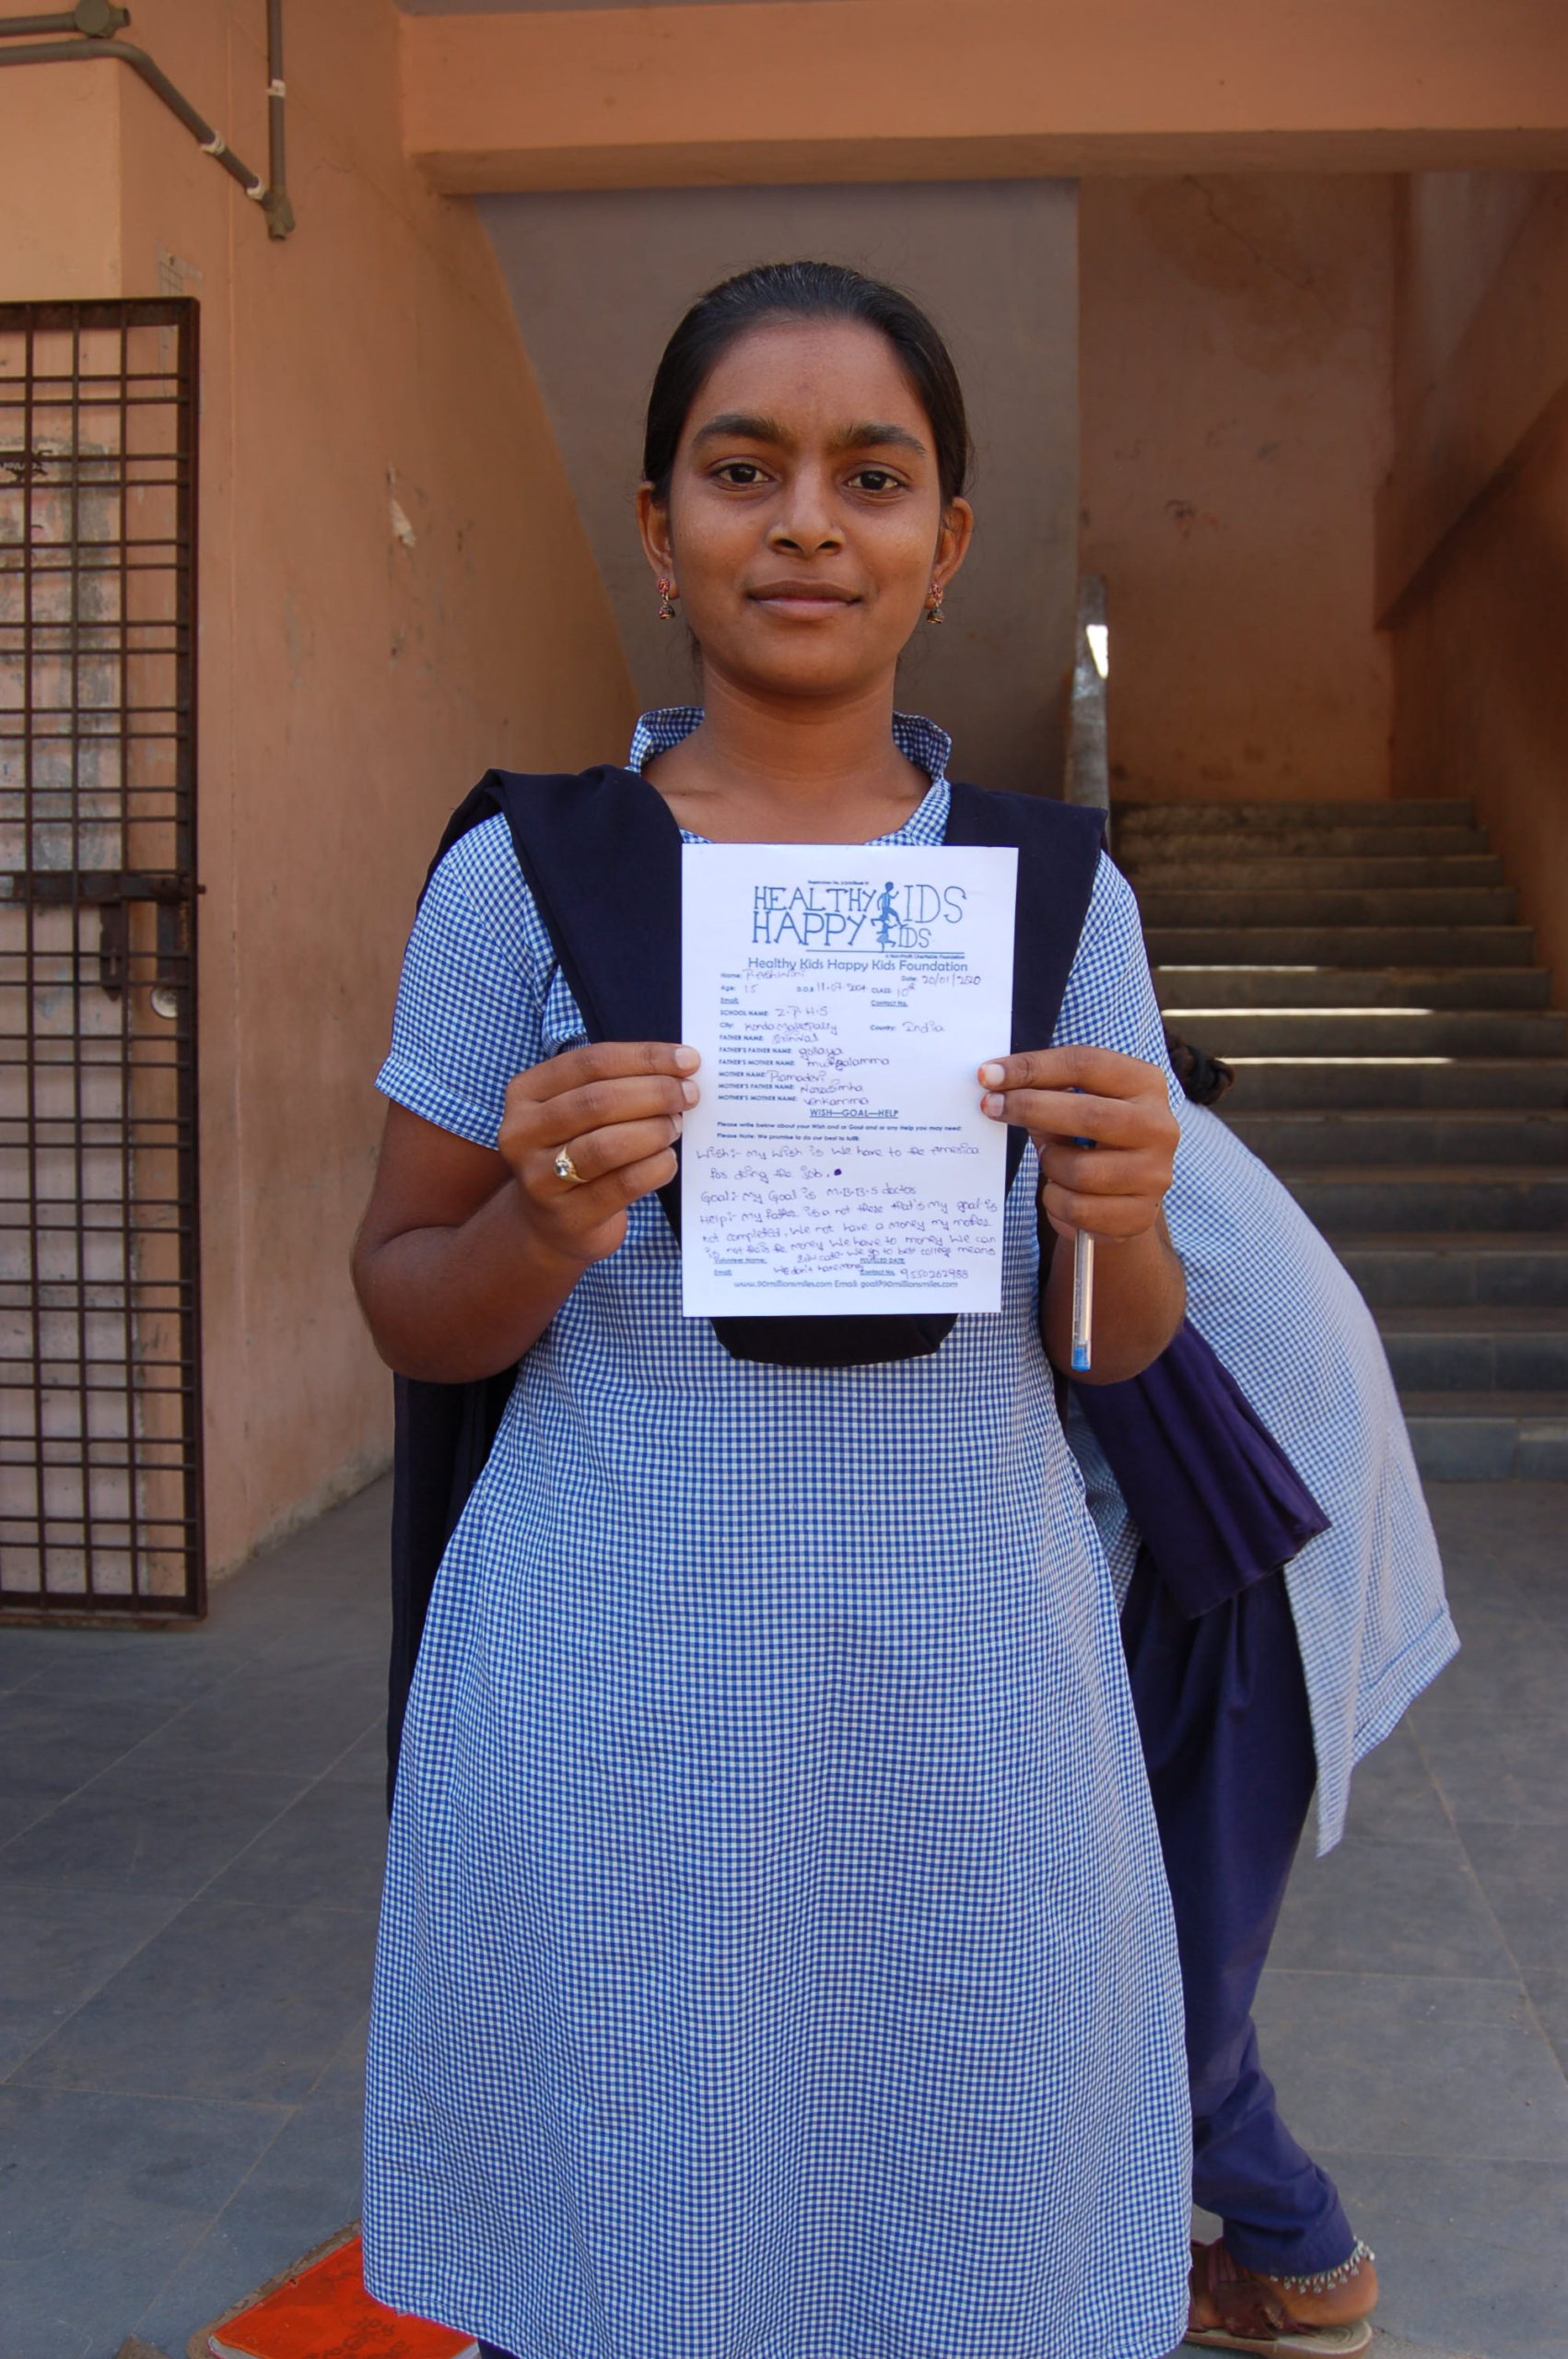 HEALTHY KIDS
HAPPY KIDS
A Non-Profit Charitable Foundation
Healthy Kids Happy Kids Foundation
Name: Date: 20/01/2020
Age: 15 D.O.B 11-07-2004 CLASS: 10th
Email: Contact No.
SCHOOL NAME: Z.P.H.S
City: Country: India
FATHER NAME:
FATHER'S FATHER NAME: gollaya
FATHER'S MOTHER NAME:
MOTHER NAME: Ramadevi
MOTHER'S FATHER NAME: Narasimha
MOTHER'S MOTHER NAME: Venkamma
WISH—GOAL—HELP
Please write below about your Wish and or Goal and or any Help you may need:
Please Note: We promise to do our best to fulfill:
Wish:- My Wish is We have to the America
for doing the job.
Goal:- My Goal is M.B.B.S doctor
Help:- My father is a not there that's my goal is
not completed. We not have a money my mother
is not the money We have to money We can
We go to best college means
Volunteer Name: FULFILLED DATE
We don't have money
Email: Contact No. 9550262988
www.90millionsmiles.com Email: goal@90millionsmiles.com